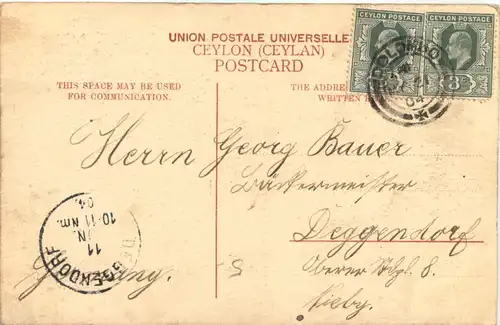 UNION POSTALE UNIVERSELLE
CEYLON (CEYLAN)
POSTCARD
CEYLON POSTAGE CEYLON POSTAGE
COLOMBO
04
THIS SPACE MAY BE USED
FOR COMMUNICATION.
THE ADDRE
WRITTEN
Herrn Georg Bauer
Bäckermeister
Deggendorf
Oberer Stdtpl. 8.
Germany
DEGGENDORF
11
JN.
04.
10-11 Nm.